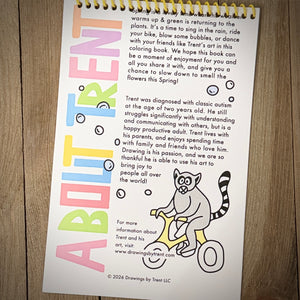 ABOUT TRENT
warms up & green is returning to the
plants. It's a time to sing in the rain, ride
your bike, blow some bubbles, or dance
with your friends like Trent's art in this
coloring book. We hope this book can
be a moment of enjoyment for you and
all you share it with, and give you a
chance to slow down to smell the
flowers this Spring!
Trent was diagnosed with classic autism
at the age of two years old. He still
struggles significantly with understanding
and communicating with others, but is a
happy productive adult. Trent lives with
his parents, and enjoys spending time
with family and friends who love him.
Drawing is his passion, and we are so
thankful he is able to use his art to
bring joy to
people all over
the world!
For more
information about
Trent and his
art, visit
www.drawingsbytrent.com
© 2024 Drawings by Trent LLC